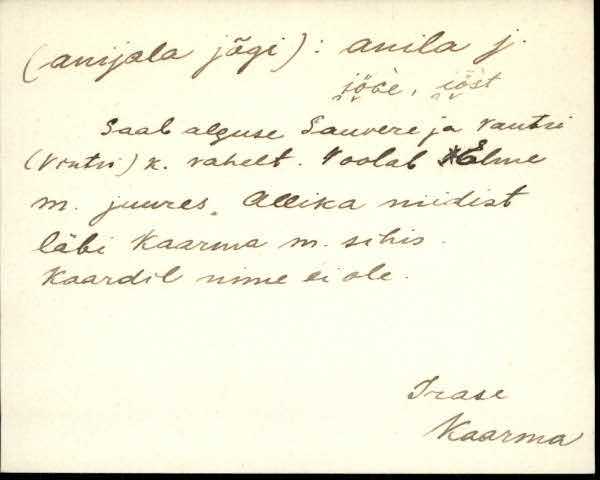 (anijala jõgi): anila j.
jöcè, jöst
Saab alguse Sauvere ja Vantri
(Vontri) k. vahelt. Voolab Elme
m. juures, Allika niidist
läbi Kaarma m. sihis.
Kaardil nime ei ole.
Irase
Kaarma